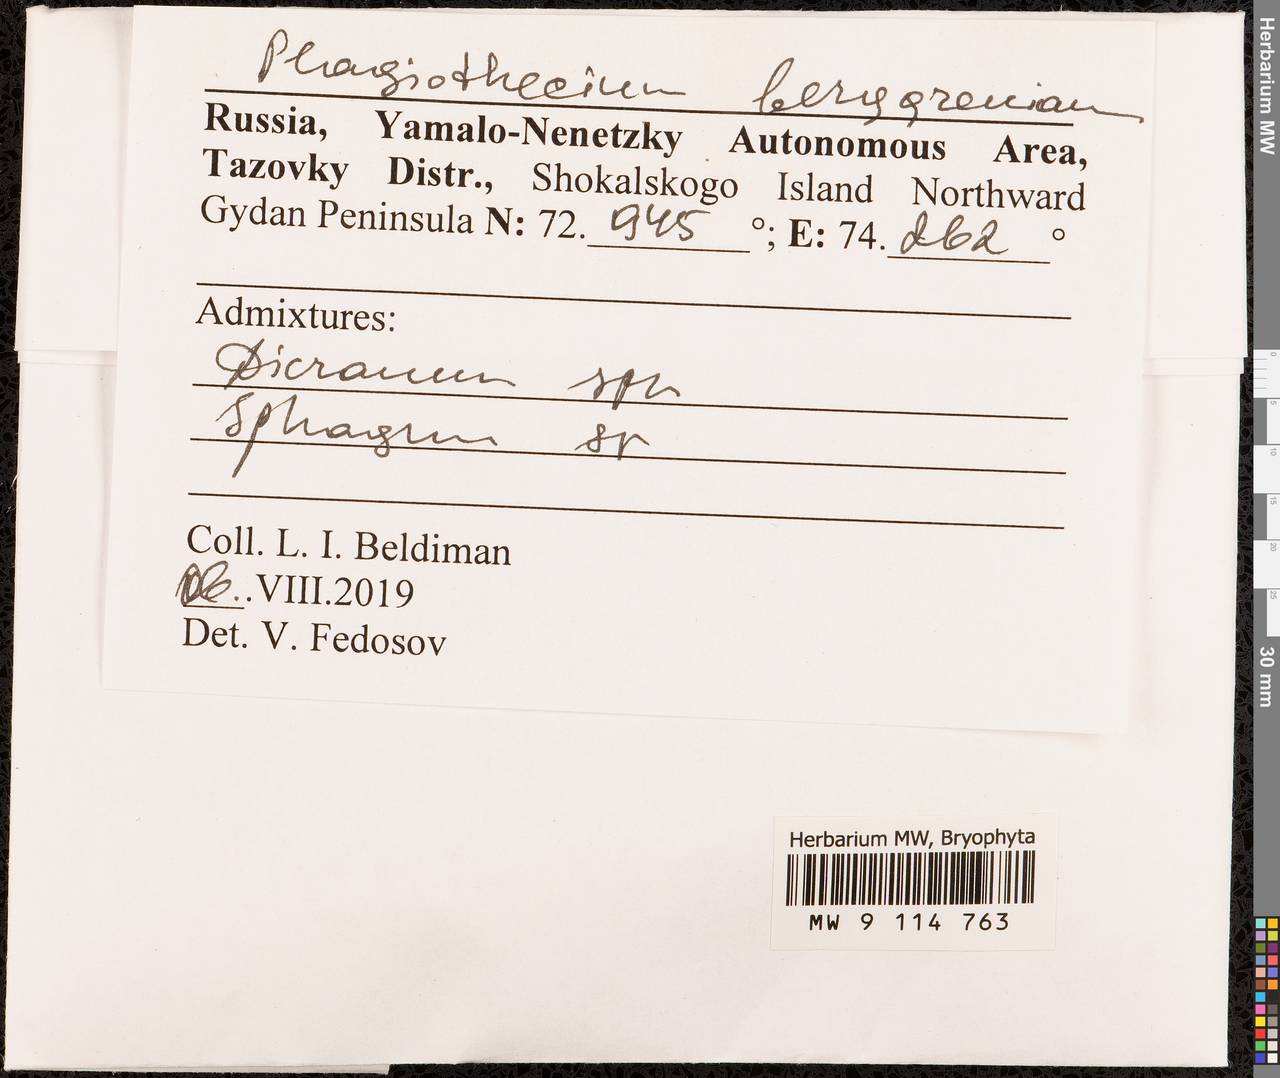 Plagiothecium berggrenianum
Russia, Yamalo-Nenetzky Autonomous Area,
Tazovky Distr., Shokalskogo Island Northward
Gydan Peninsula N: 72. 945 °; E: 74. 262 °
Admixtures:
Dicranum spn
Sphagnum sp
Coll. L. I. Beldiman
06..VIII.2019
Det. V. Fedosov
Herbarium MW, Bryophyta
MW 9 114 763
Herbarium MW
0
5
10
15
20
25
30 mm